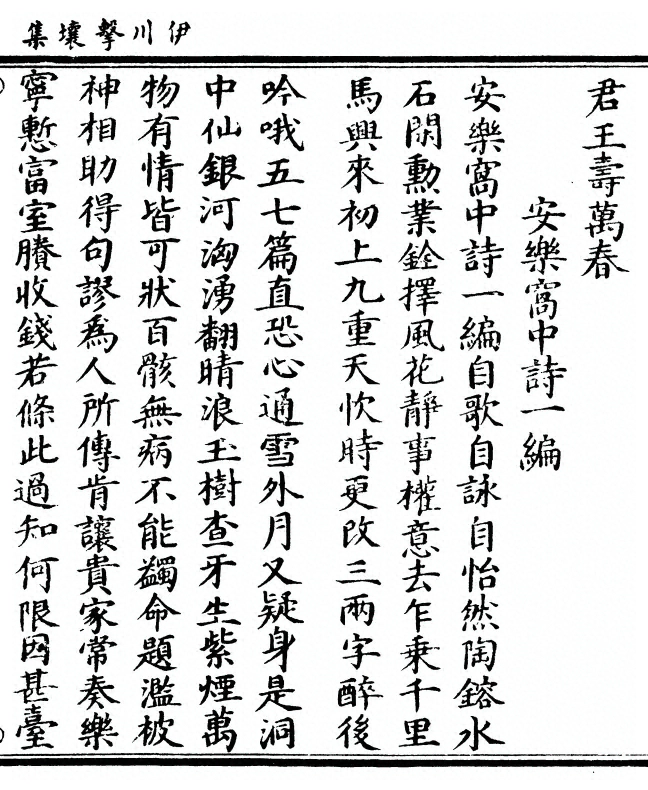 伊川擊壤集
君王壽萬春
安樂窩中詩一編
安樂窩中詩一編自歌自詠自怡然陶鎔水
石閑勳業銓擇風花靜事權意去乍乘千里
馬興來初上九重天忺時更改三兩字醉後
吟哦五七篇直恐心通雪外月又疑身是洞
中仙銀河洶湧翻晴浪玉樹查牙生紫煙萬
物有情皆可狀百骸無病不能蠲命題濫被
神相助得句謬爲人所傳肯讓貴家常奏樂
寧慙富室賸收錢若條此過知何限因甚臺